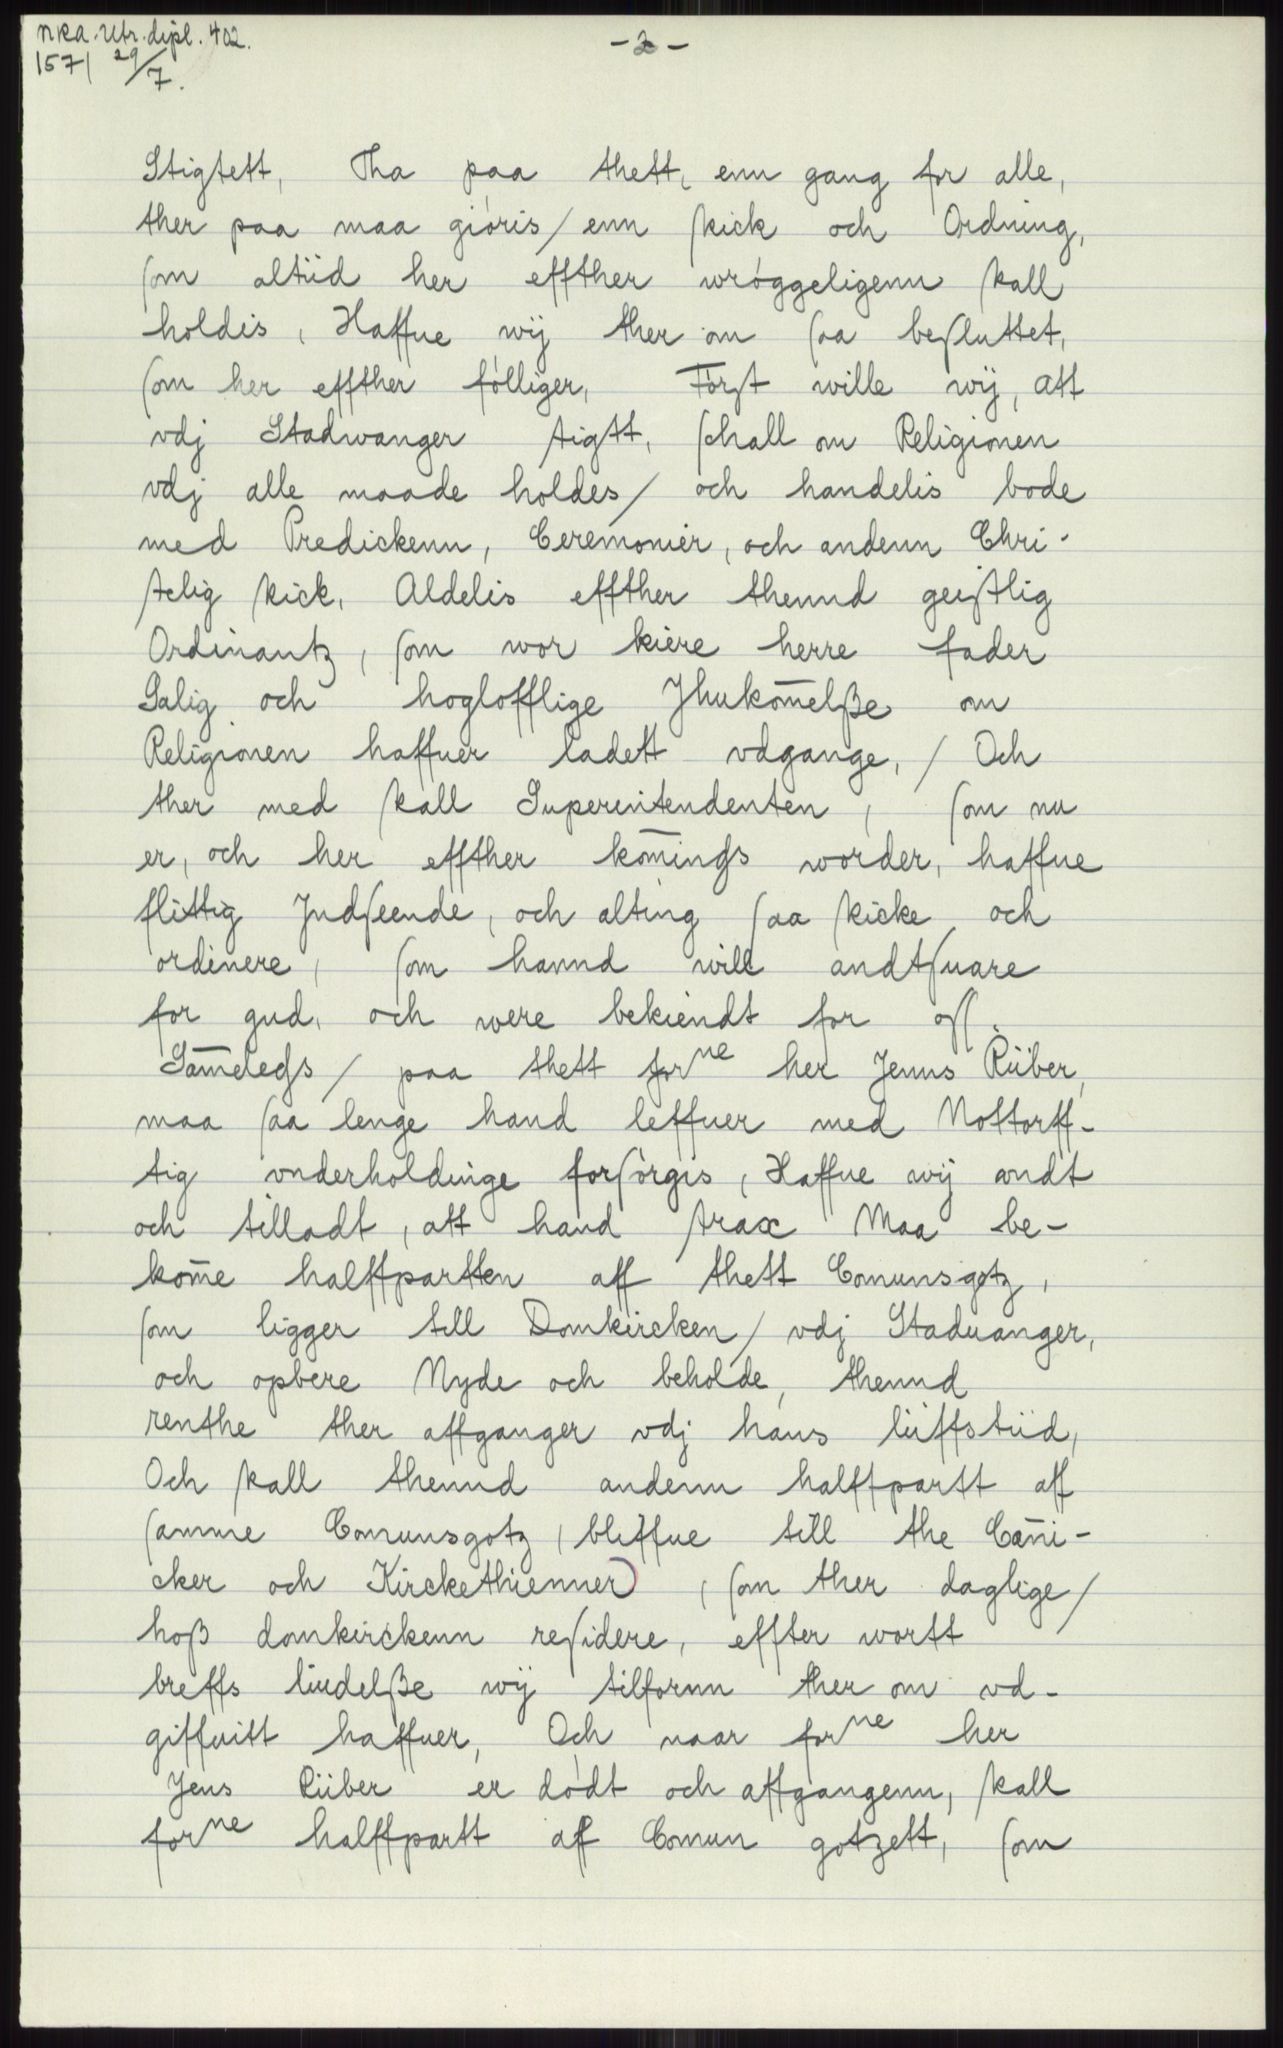 NRA. Utr. dipl. 402.
1571 29/7.
- 2 -
Stigtett, Tha paa thett, enn gang for alle,
ther paa maa giöris / enn skick och Ordning,
som altiid her effther wröggeligenn skall
holdis, Haffue wij ther om saa besluttet,
som her effther fölliger, Förſt wille wij, att
vdj Stadwanger stigtt, schall om Religionen
vdj alle maade holdes / och handelis bode
med Predickenn, Ceremonier, och andenn Chri-
stelig skick, Aldelis effther thennd geiſtlig
Ordinantz, ſom wor kiere herre fader
Salig och hoglofflige Jhukom̄elße om
Religionen haffuer ladett vdgange, / Och
ther med skall Superintendenten, ſom nu
er, och her effther kom̄ings worder, haffue
flittig Jndſeende, och alting ſaa skicke och
ordinere, ſom hannd will andtſuare
for gud, och were bekiendt for oſſ.
Sam̄eledſs / paa thett forne her Jenns Riiber,
maa ſaa lenge hand leffuer med Nottorff-
tig vnderholdinge forſörgis, Haffue wij wndt
och tilladt, att hand strax Maa be-
kom̄e halffpartten aff thett Comunsgotz,
ſom ligger till Domkircken / vdj Staduanger,
och opbere Nyde och beholde, thennd
renthe ther affganger vdj hans liiffstiid,
Och skall thennd andenn halffpartt aff
ſamme Comunsgotz, bliffue till the Can̄i-
cker och Kirckethienner, ſom ther daglige /
hoß domkirckenn reſidere, effter wortt
breffs liudelße wij tilfornn ther om vd-
giffuitt haffuer, Och naar forne her
Jens Riiber er dödt och affgangenn, skall
forne halffpartt aff Comun gotzett, ſom